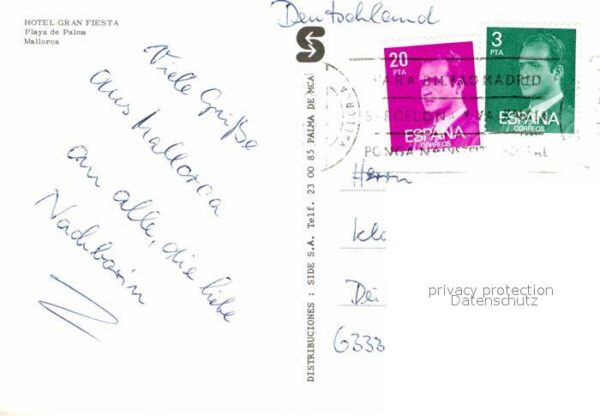 HOTEL GRAN FIESTA
Playa de Palma
Mallorca
Viele Grüße
aus Mallorca
an alle, die liebe
Nachbarin
DISTRIBUCIONES : SIDE S.A. Telf. 23 00 85 PALMA DE MCA
S
Deutschland
20
PTA
ESPAÑA
CORREOS
3
PTA
ESPAÑA
CORREOS
PARA BILBAO MADRID
BARCELONA
PONGA
Herrn
kle
Dei
6333
privacy protection
Datenschutz